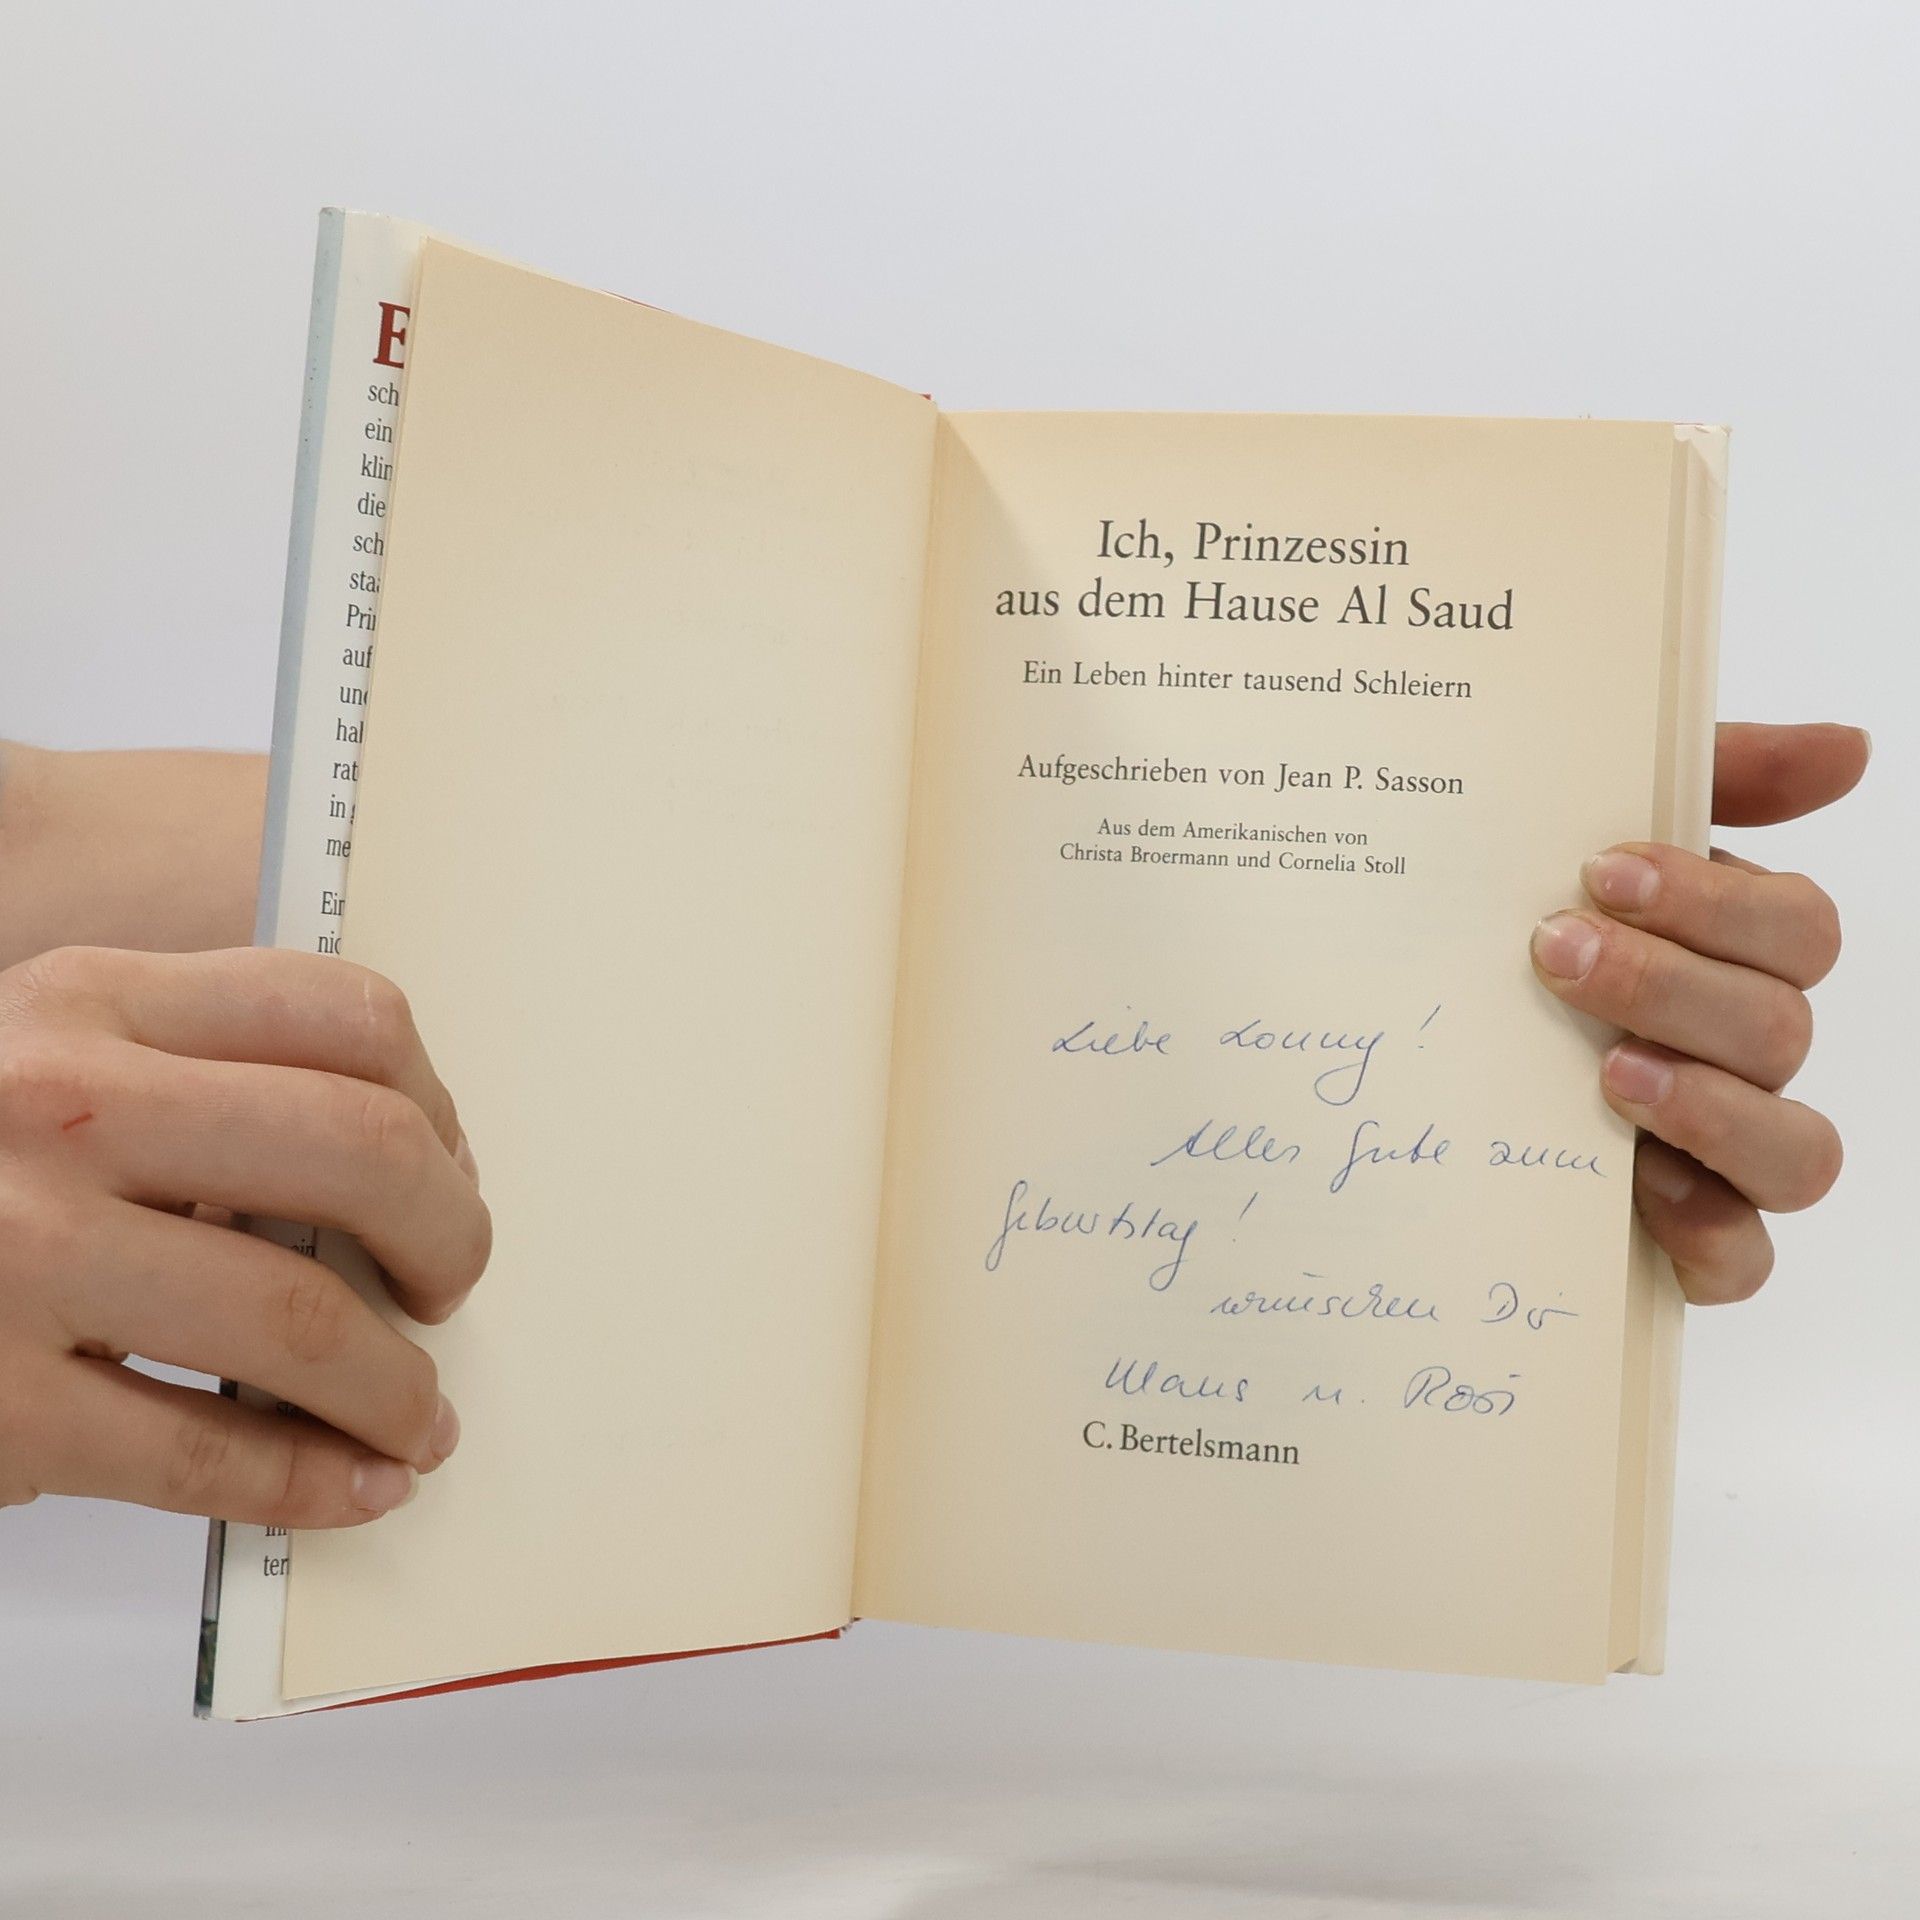 E
sch
ein
klin
die
sch
sta
Prin
auf
und
hal
rat
in
me
Ein
nic
ein
im
ter
Ich, Prinzessin
aus dem Hause Al Saud
Ein Leben hinter tausend Schleiern
Aufgeschrieben von Jean P. Sasson
Aus dem Amerikanischen von
Christa Broermann und Cornelia Stoll
Liebe Lonny!
Alles Gute zum
Geburtstag!
wünschen Dir
Klaus u. Rosi
C. Bertelsmann